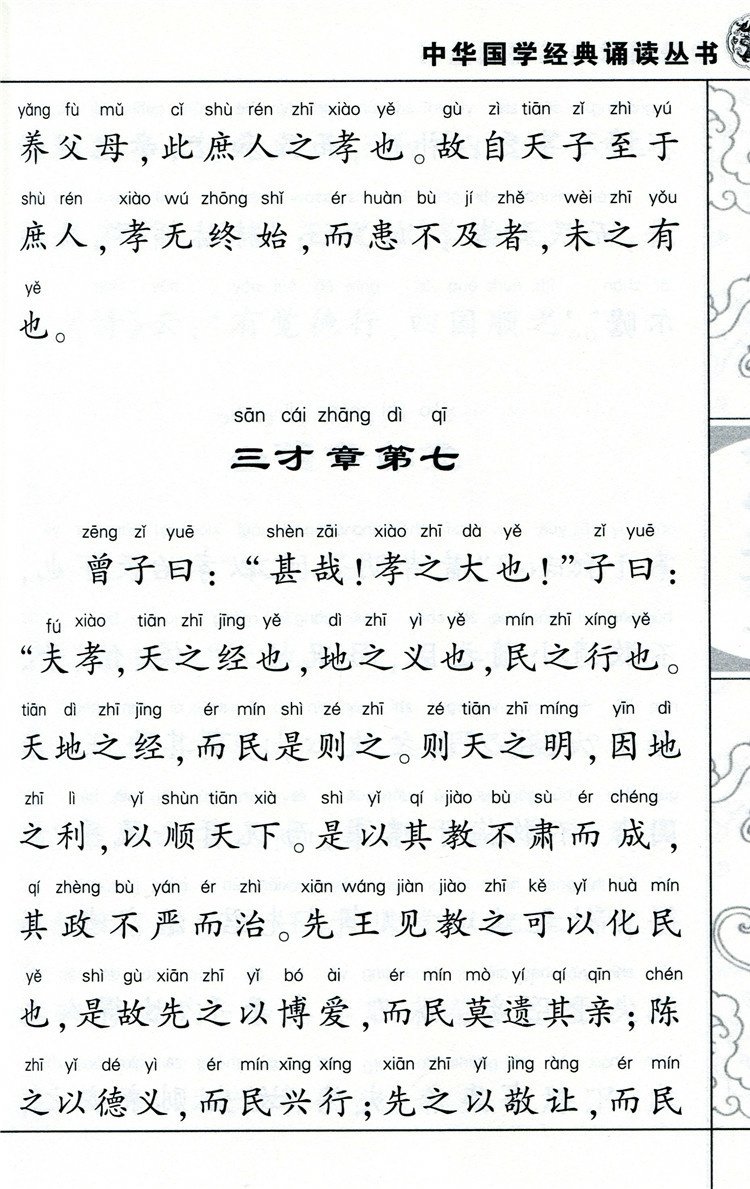 中华国学经典诵读丛书
yǎng fù mǔ cǐ shù rén zhī xiào yě gù zì tiān zǐ zhì yú
养父母，此庶人之孝也。故自天子至于
shù rén xiào wú zhōng shǐ ér huàn bù jí zhě wèi zhī yǒu
庶人，孝无终始，而患不及者，未之有
yě
也。
sān cái zhāng dì qī
三才章第七
zēng zǐ yuē shèn zāi xiào zhī dà yě zǐ yuē
曾子曰：“甚哉！孝之大也！”子曰：
fú xiào tiān zhī jīng yě dì zhī yì yě mín zhī xíng yě
“夫孝，天之经也，地之义也，民之行也。
tiān dì zhī jīng ér mín shì zé zhī zé tiān zhī míng yīn dì
天地之经，而民是则之。则天之明，因地
zhī lì yǐ shùn tiān xià shì yǐ qí jiào bù sù ér chéng
之利，以顺天下。是以其教不肃而成，
qí zhèng bù yán ér zhì xiān wáng jiàn jiào zhī kě yǐ huà mín
其政不严而治。先王见教之可以化民
yě shì gù xiān zhī yǐ bó ài ér mín mò yí qí qīn chén
也，是故先之以博爱，而民莫遗其亲；陈
zhī yǐ dé yì ér mín xīng xíng xiān zhī yǐ jìng ràng ér mín
之以德义，而民兴行；先之以敬让，而民